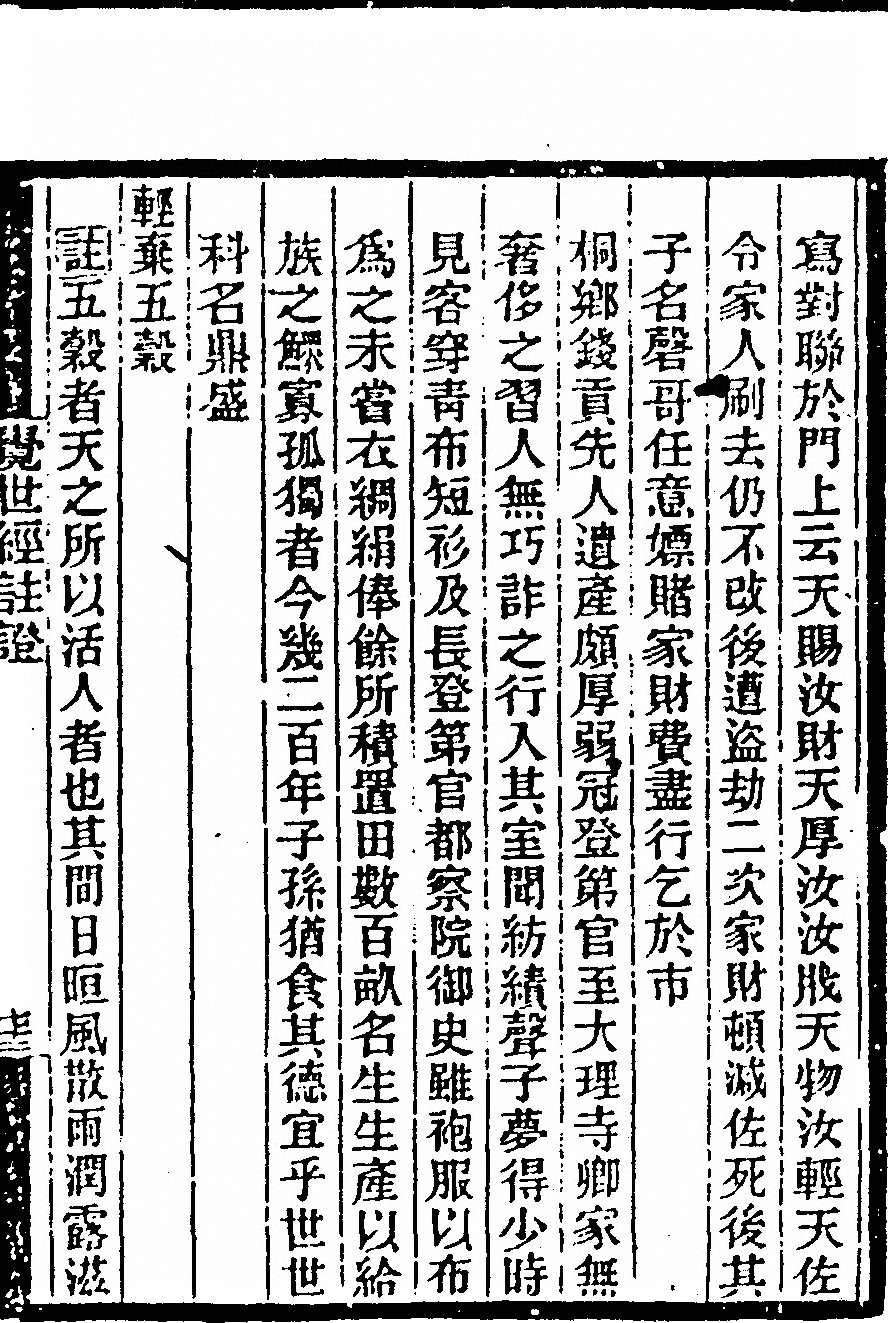 寫對聯於門上云天賜汝財天厚汝汝戕天物汝輕天佐
令家人刷去仍不改後遭盜劫二次家財頓減佐死後其
子名磬哥任意嫖賭家財費盡行乞於市
桐鄉錢貢先人遺產頗厚弱冠登第官至大理寺卿家無
奢侈之習人無巧詐之行入其室聞紡績聲子夢得少時
見客穿靑布短衫及長登第官都察院御史雖袍服以布
為之未嘗衣綢絹俸餘所積置田數百畝名生生產以給
族之鰥寡孤獨者今幾二百年子孫猶食其德宜乎世世
科名鼎盛
輕棄五穀
註五穀者天之所以活人者也其間日晅風散雨潤露滋
覺世經註證